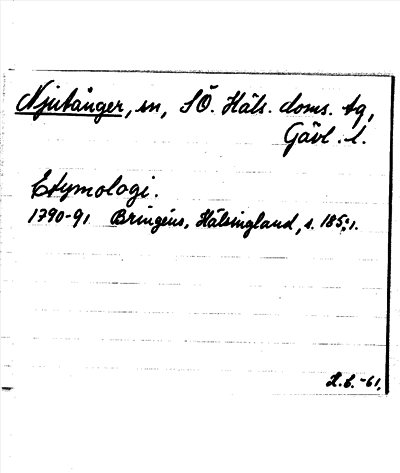 Njutånger, sn, SÖ. Häls. doms. tg,
Gävl. l.
Etymologi.
1790-91 Bringéus, Hälsingland, s. 185; 1.
H.C. -61.